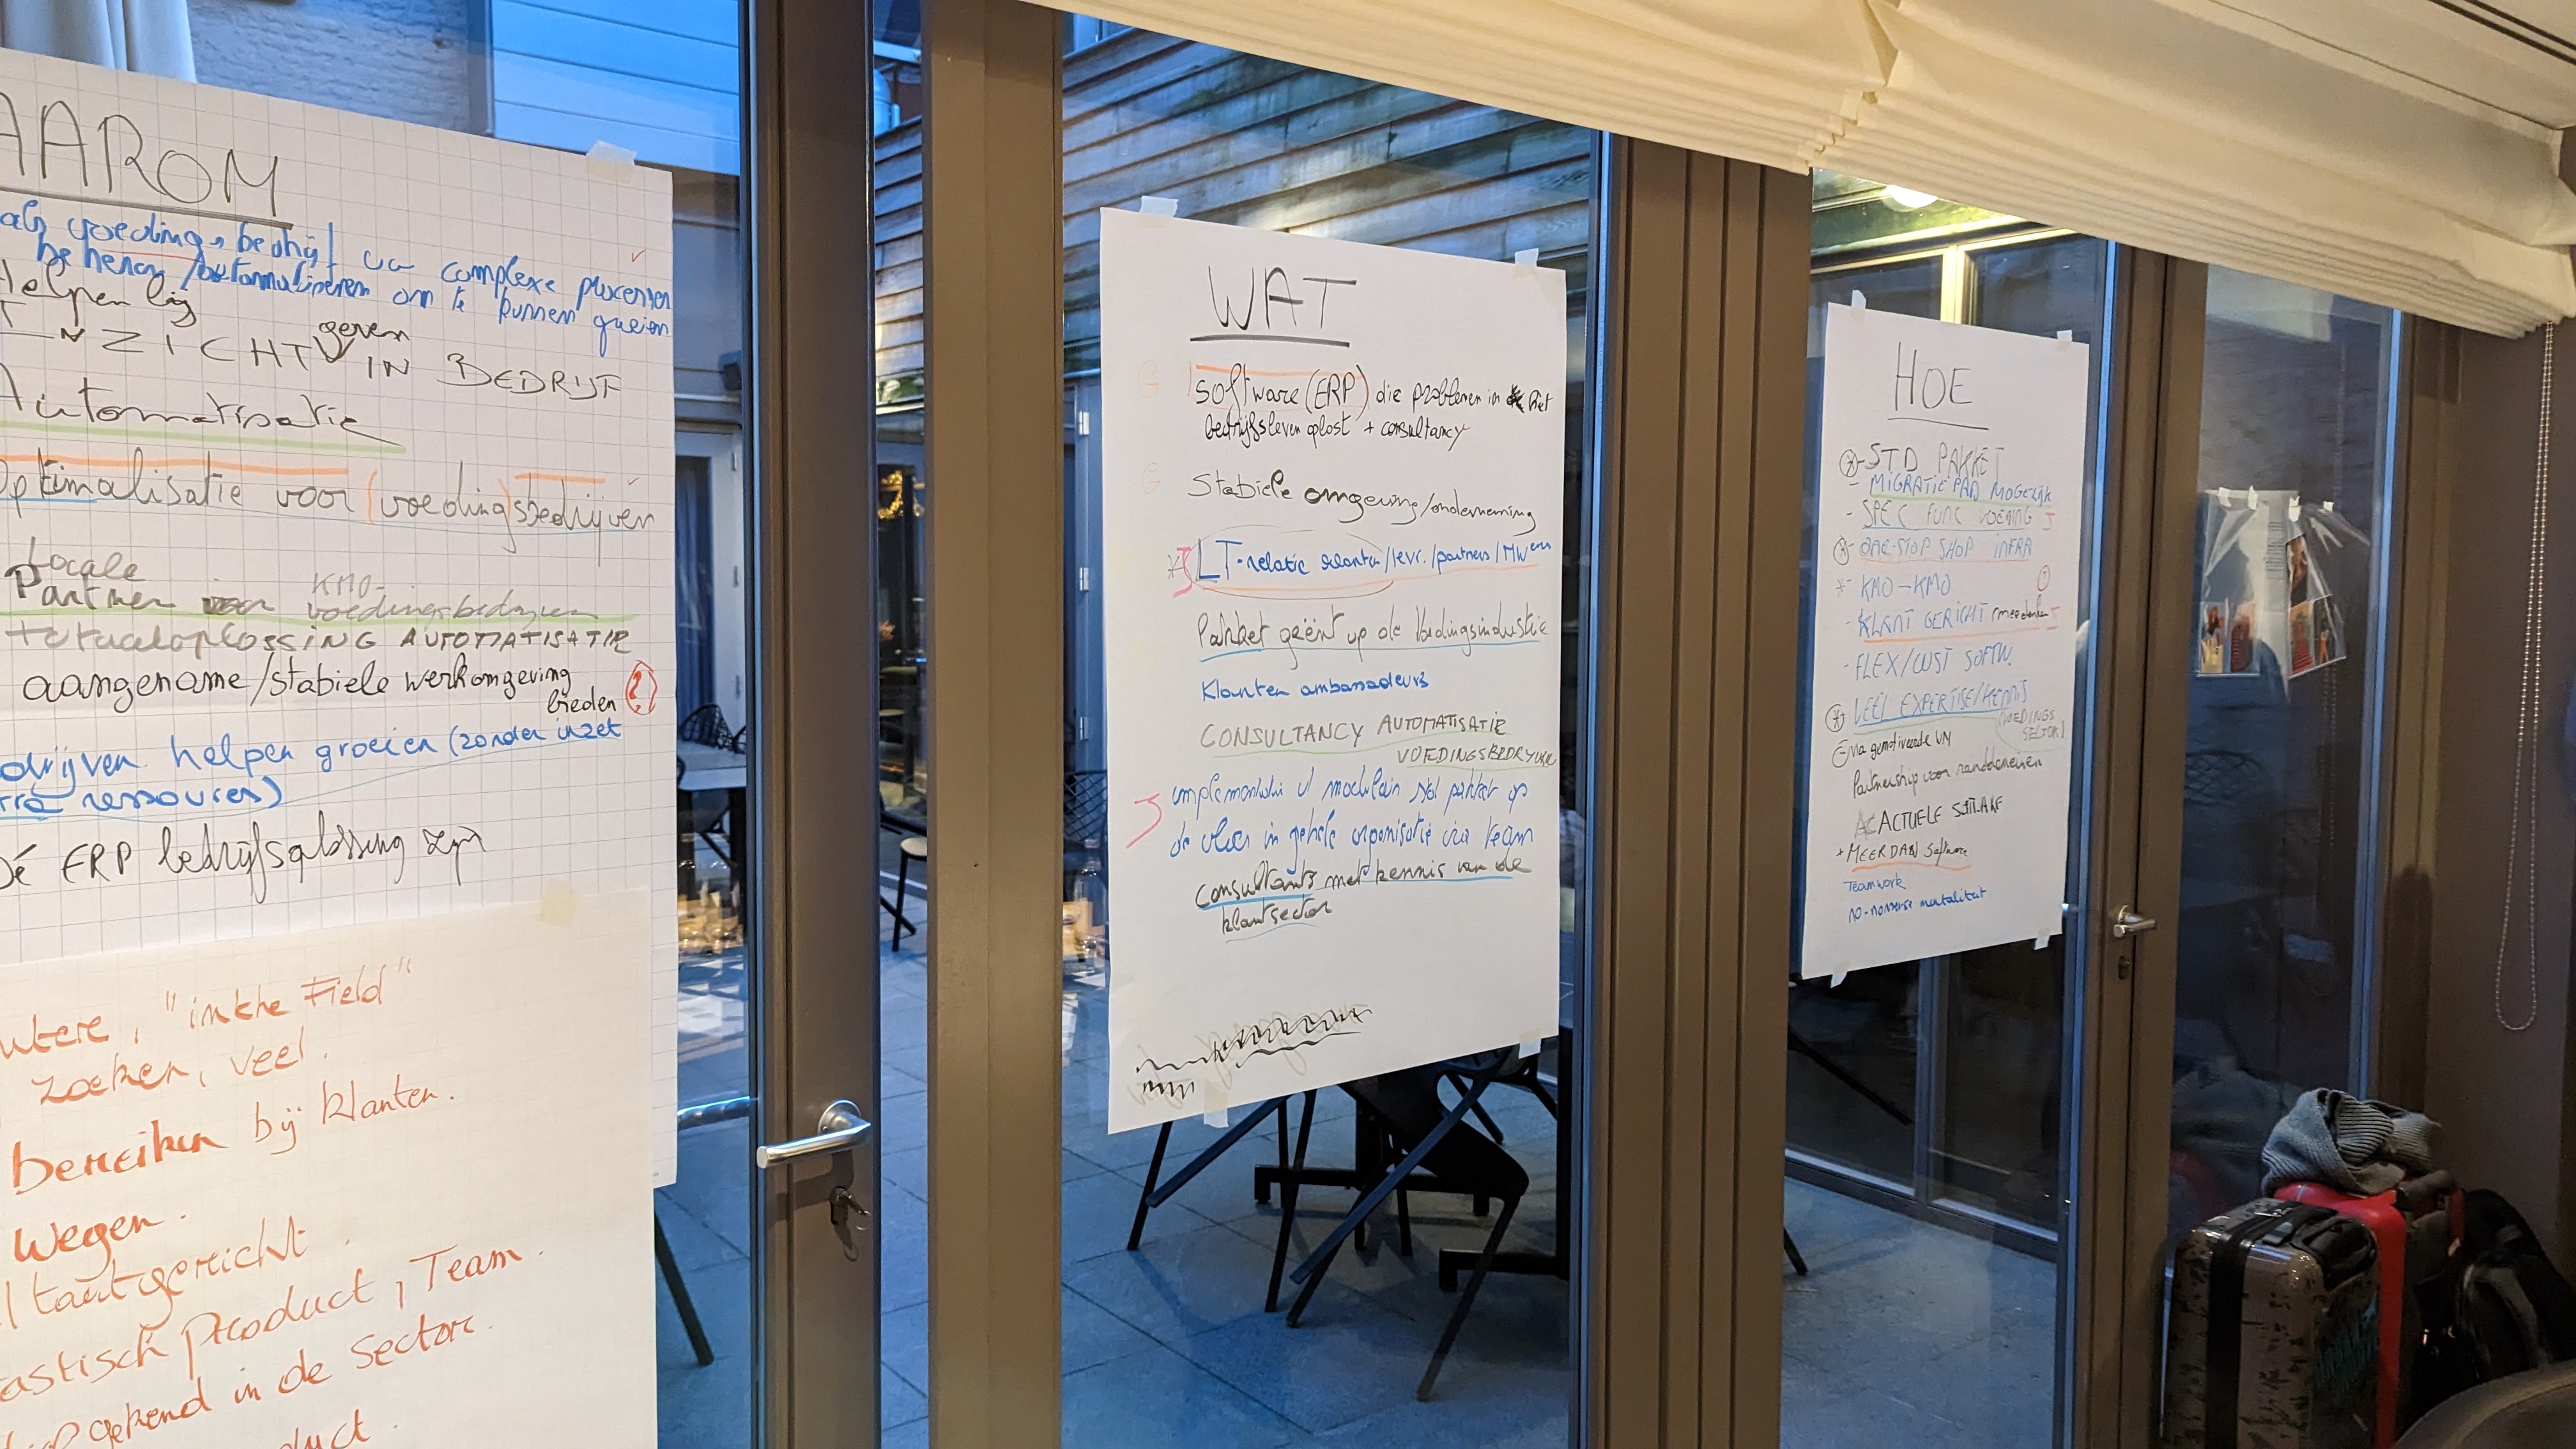 AAROM
als voedingsbedrijf uw complexe processen
beheren/automatiseren om te kunnen groeien
Helpen bij
geven
INZICHT V IN BEDRIJF
Automatisatie
Optimalisatie voor (voeding)sbedrijven
Locale
Partner voor KMO-
voedingsbedrijven
totaaloplossing AUTOMATISATIE
aangename/stabiele werkomgeving
bieden ?
drijven helpen groeien (zonder inzet
tra ressources)
Dé ERP bedrijfsoplossing zijn
utere, "in the Field"
zoeken, veel.
bereiken bij klanten.
wegen.
ltantgericht.
tastisch product, Team.
gekend in de sector.
duct.
WAT
G software (ERP) die problemen in het
bedrijfsleven oplost + consultancy
G Stabiele omgeving/onderneming
* J LT-relatie klanten/levr./partners/MWers
Pakket geënt op de Voedingsindustrie
Klanten ambassadeurs
CONSULTANCY AUTOMATISATIE
VOEDINGSBEDRIJVEN
J implementatie v modulair std pakket op
de vloer in gehele organisatie via team
Consultants met kennis van de
klantsector
HOE
* - STD PAKKET
- MIGRATIEPAD MOGELIJK
- SPEC FUNC VOEDING J
* - ONE-STOP SHOP INFRA
* - KMO-KMO
- KLANT GERICHT (meedenken J
- FLEX/CUST SOFTW.
* VEEL EXPERTISE/KENNIS
(VOEDINGS
SECTOR)
via gemotiveerde
Partnership voor randdomeinen
ACTUELE SOFTWARE
+ MEER DAN Software
Teamwork
no-nonsense mentaliteit